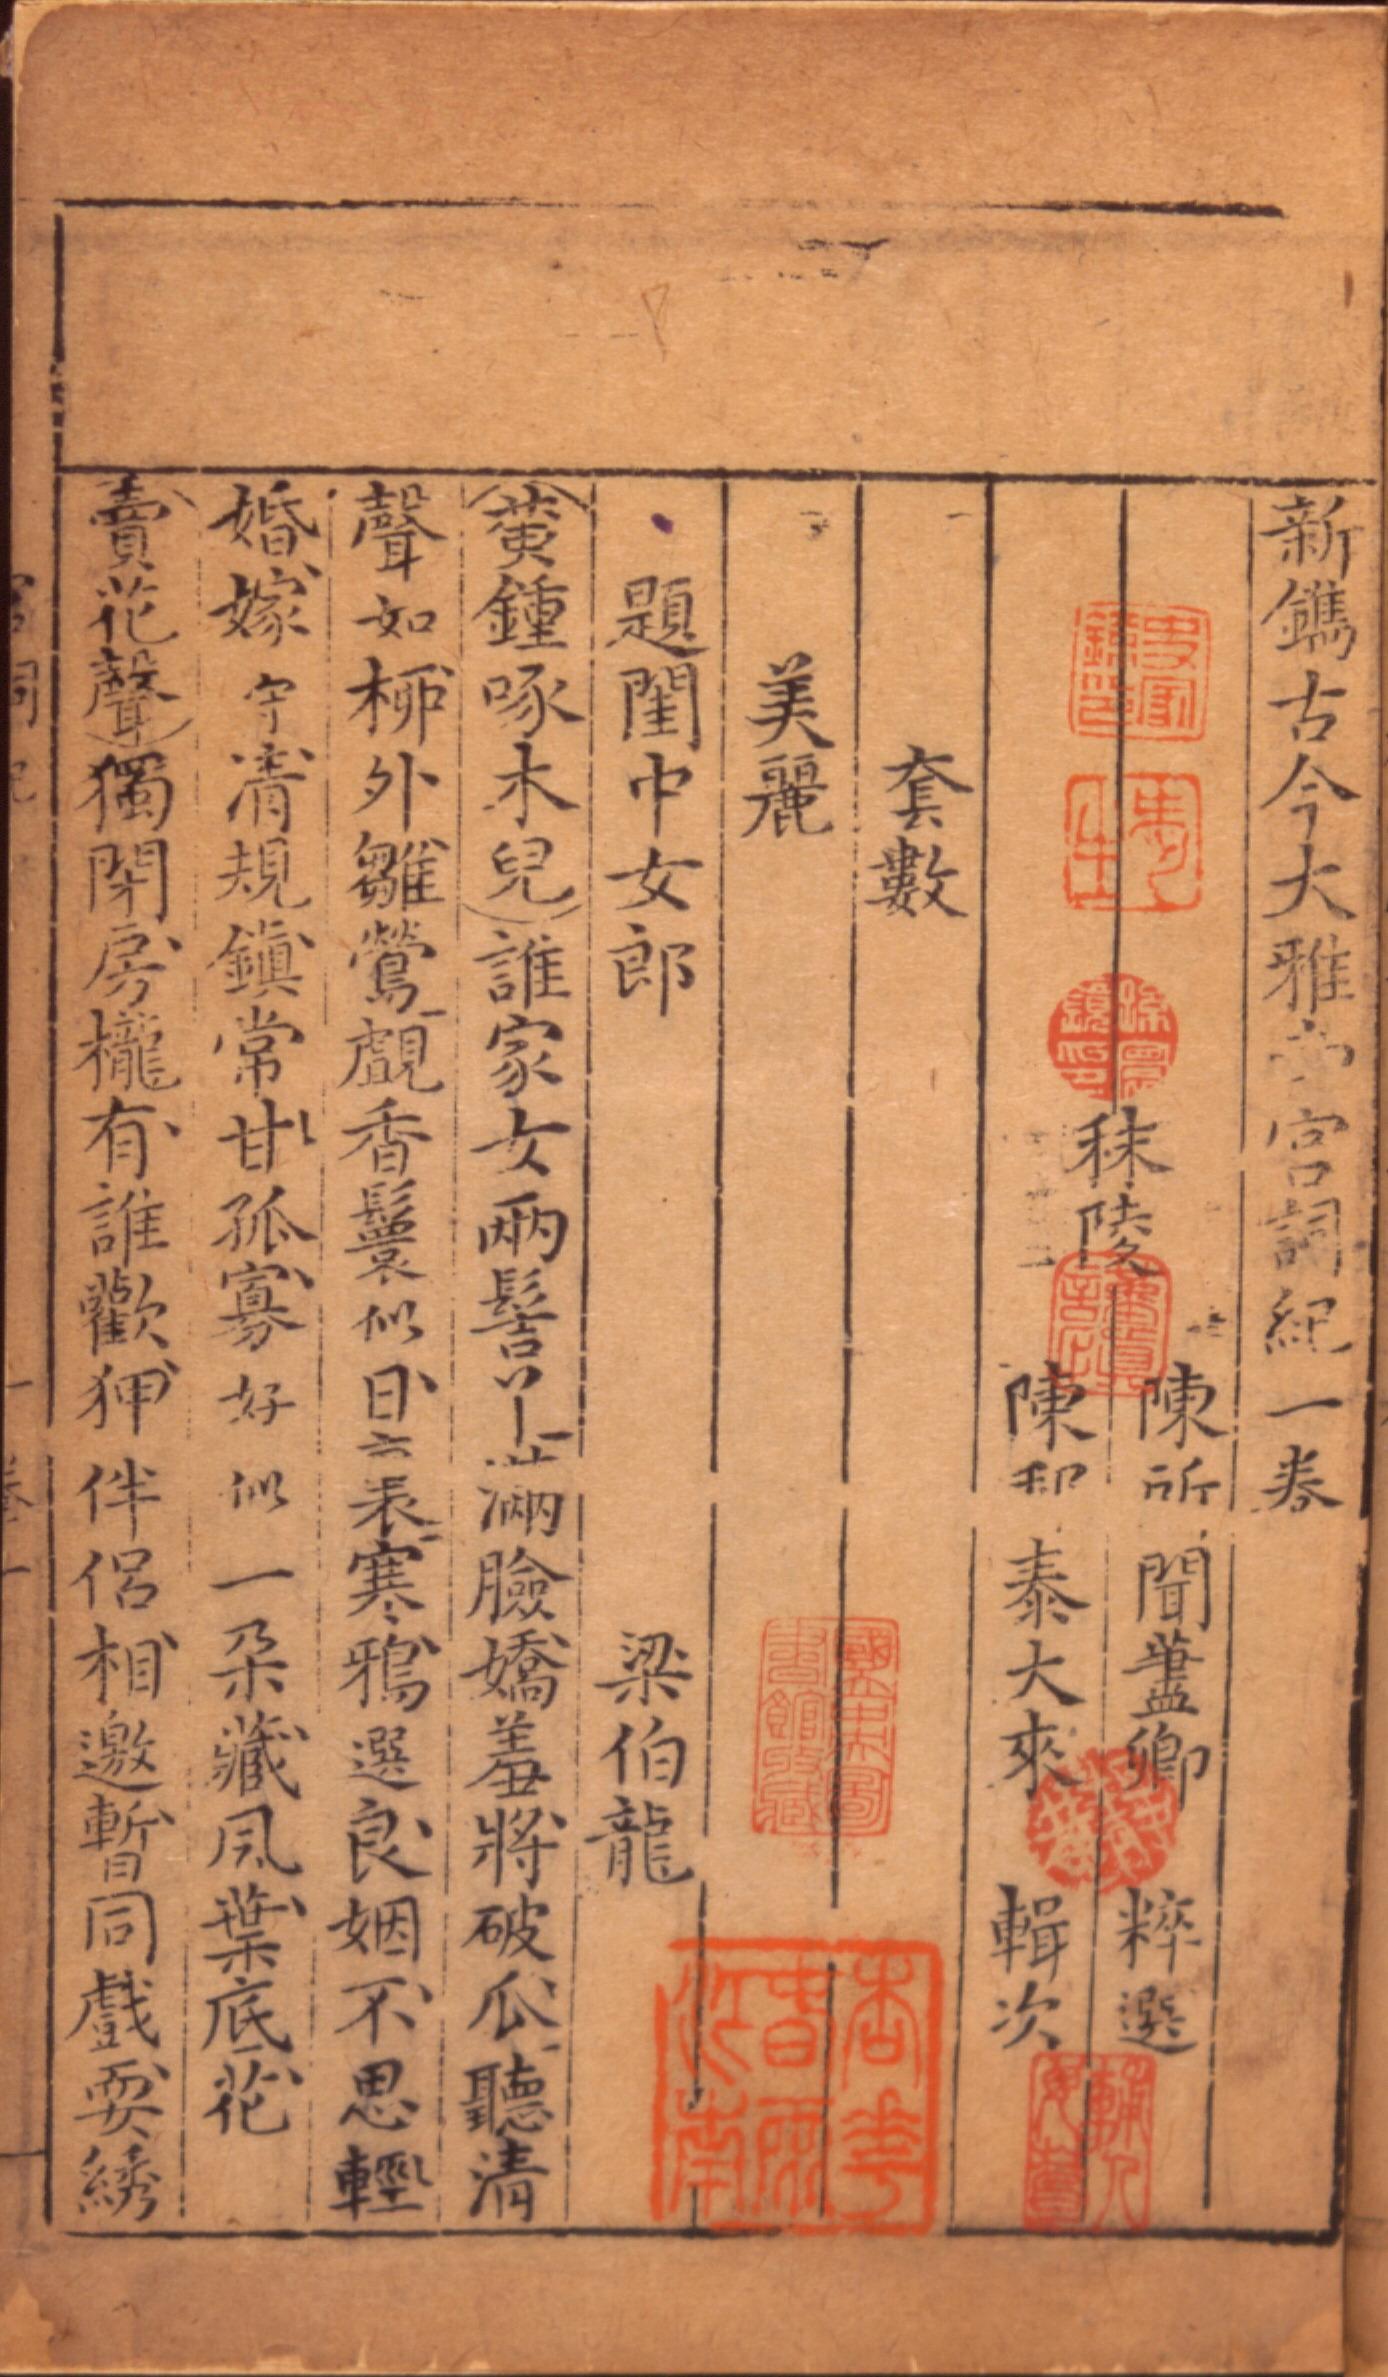 新鐫古今大雅宮詞紀一卷
秣陵
陳所聞藎卿粹選
陳邦泰大來輯次
套數
美麗
題閨中女郎 梁伯龍
黃鍾啄木兒誰家女兩髻丫滿臉嬌羞將破瓜聽清
聲如柳外雛鶯覷香鬟似日裊寒鴉選良姻不思輕
婚嫁守清規鎮常甘孤寡好似一朵藏風葉底花
賣花聲獨閉房櫳有誰歡狎伴侶相邀暫同戲耍綉
國立中央圖書館收藏
杏花春雨江南